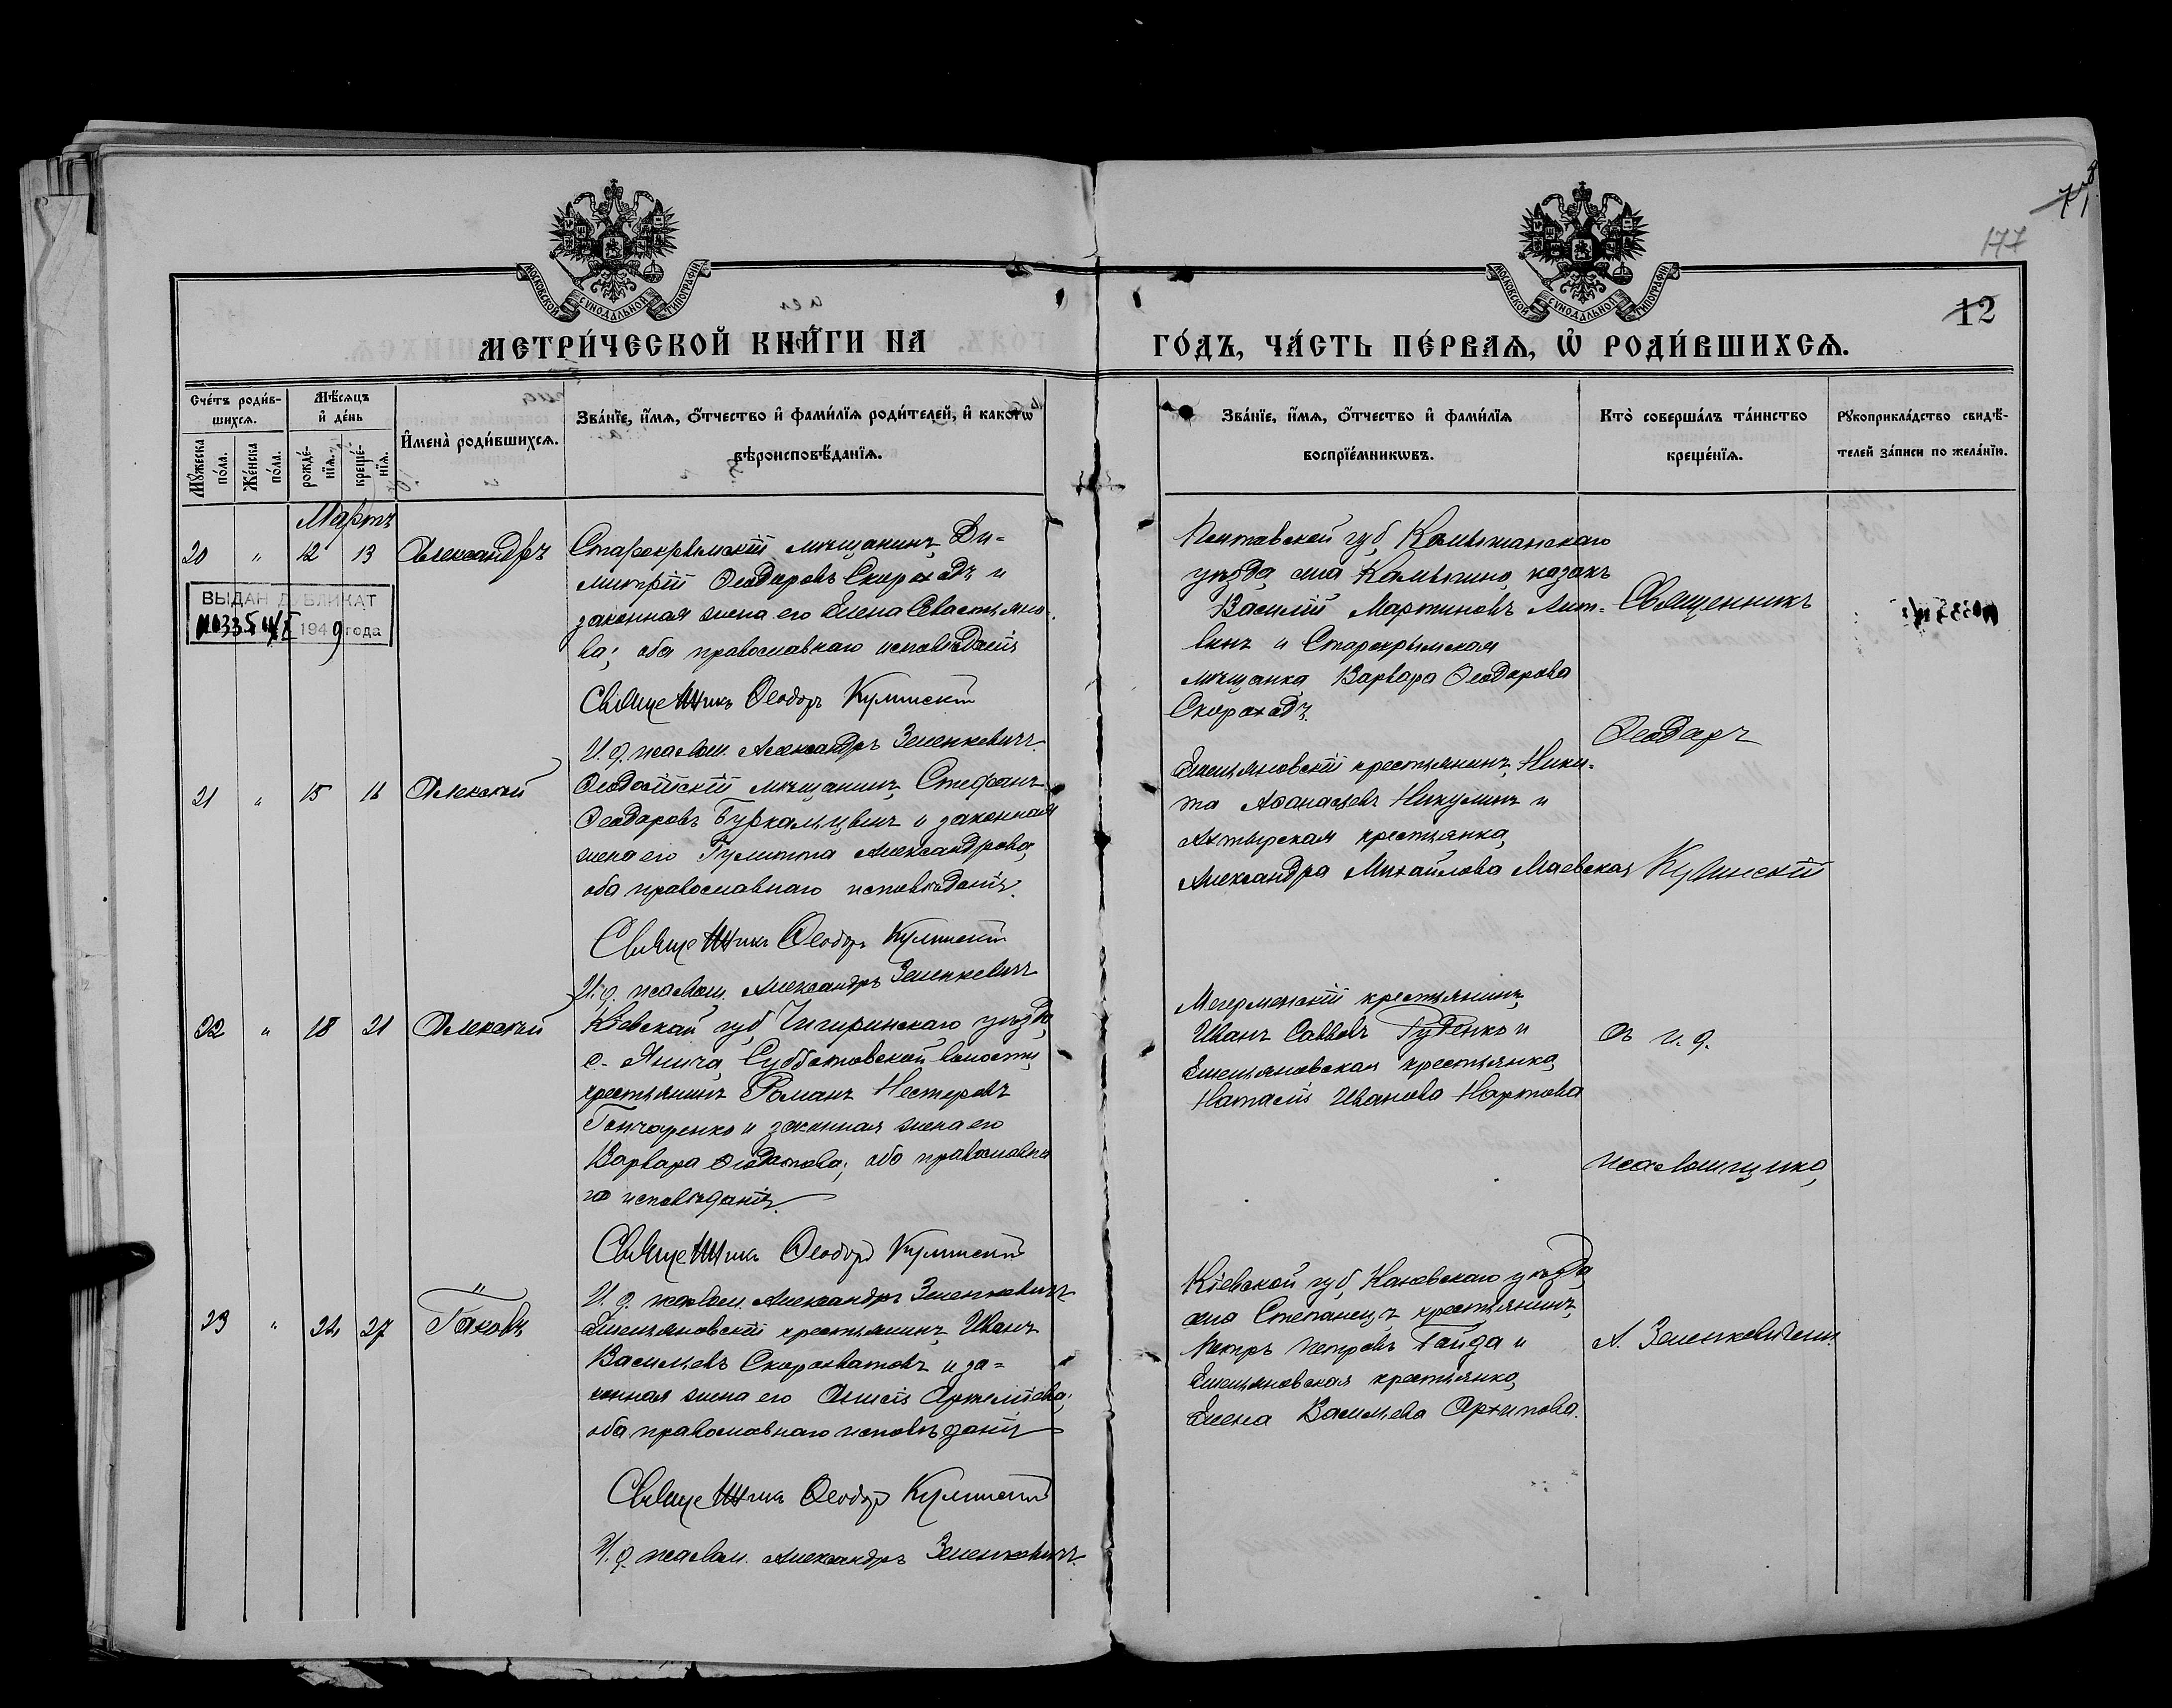 178
177
12
МОСКОВСКОЙ СѴНОДАЛЬНОЙ ТИПОГРАФІИ
МОСКОВСКОЙ СѴНОДАЛЬНОЙ ТИПОГРАФІИ
МЕТРИ́ЧЕСКОЙ КНИ́ГИ НА
ГО́ДЪ, ЧА́СТЬ ПЕ́РВАѦ, Ѡ҆ РОДИ́ВШИХСѦ.
Сче́тъ роди́в-
шихсѧ.
Мꙋжеска по́ла.
Же́нска по́ла.
Мѣ́сѧцъ
и҆ де́нь
рожде́-
нїѧ.
креще́-
нїѧ.
И҆мена̀ роди́вшихсѧ.
Зва́нїе, и҆́мѧ, ѻ҆́тчество и҆ фами́лїѧ роди́телей, и҆ како́гѡ
вѣроисповѣ́данїѧ.
Зва́нїе, и҆́мѧ, ѻ҆́тчество и҆ фами́лїѧ
воспрїе́мникѡвъ.
Кто̀ соверша́лъ та́инство
креще́нїѧ.
Рꙋкоприкла́дство свидѣ́-
телей за́писи по жела́нїю.
Мартъ
20 " 12 13 Александръ
Старокрымскій мѣщанинъ Ди-
митрій Ѳеодоровъ Скороходъ и
законная жена его Елена Севастьяно-
ва; оба православнаго исповѣданія
Священникъ Ѳеодоръ Кулинскій
И. д. псалом. Александръ Зеленкевичъ
ВЫДАН ДУБЛИКАТ
1949 года
Полтавской губ.
уѣзда, села казакъ
Василій Мартиновъ Лит-
винъ и Старокрымская
мѣщанка Варвара Ѳеодорова
Скороходъ.
Священникъ
Ѳеодоръ
Кулинскій
21 " 15 16 Алексѣй
Ѳеодосійскій мѣщанинъ Стефанъ
Ѳеодоровъ и законная
жена его Александрова,
оба православнаго исповѣданія.
Священникъ Ѳеодоръ Кулинскій
И. д. псалом. Александръ Зеленкевичъ
Емельяновскій крестьянинъ Ники-
та Аѳанасьевъ Никулинъ и
Ахтырская крестьянка,
Александра Михайлова Маевская
22 " 18 21 Алексѣй
Кіевской губ. Чигиринскаго уѣзда,
с. Янича, Субботовской волости,
крестьянинъ Романъ Нестеровъ
Гончаренко и законная жена его
Варвара Ѳеодотова; оба православна
го исповѣданія.
Священникъ Ѳеодоръ Кулинскій
И. д. псалом. Александръ Зеленкевичъ
крестьянинъ
Иванъ Саввовъ Руденко и
Емельяновская крестьянка,
Наталія Иванова Нартова
съ и. д.
псаломщика,
А. Зеленкевичемъ.
23 " 24 27 Іаковъ
Емельяновскій крестьянинъ Иванъ
Васильевъ Скоровватовъ и за-
конная жена его Анисія Артеміева;
оба православнаго исповѣданія
Священникъ Ѳеодоръ Кулинскій
И. д. псалом. Александръ Зеленкевичъ
Кіевской губ. Каневскаго уѣзда,
села Степанецъ крестьянинъ,
Петръ Петровъ Гайда и
Емельяновская крестьянка,
Елена Васильева Архипова.